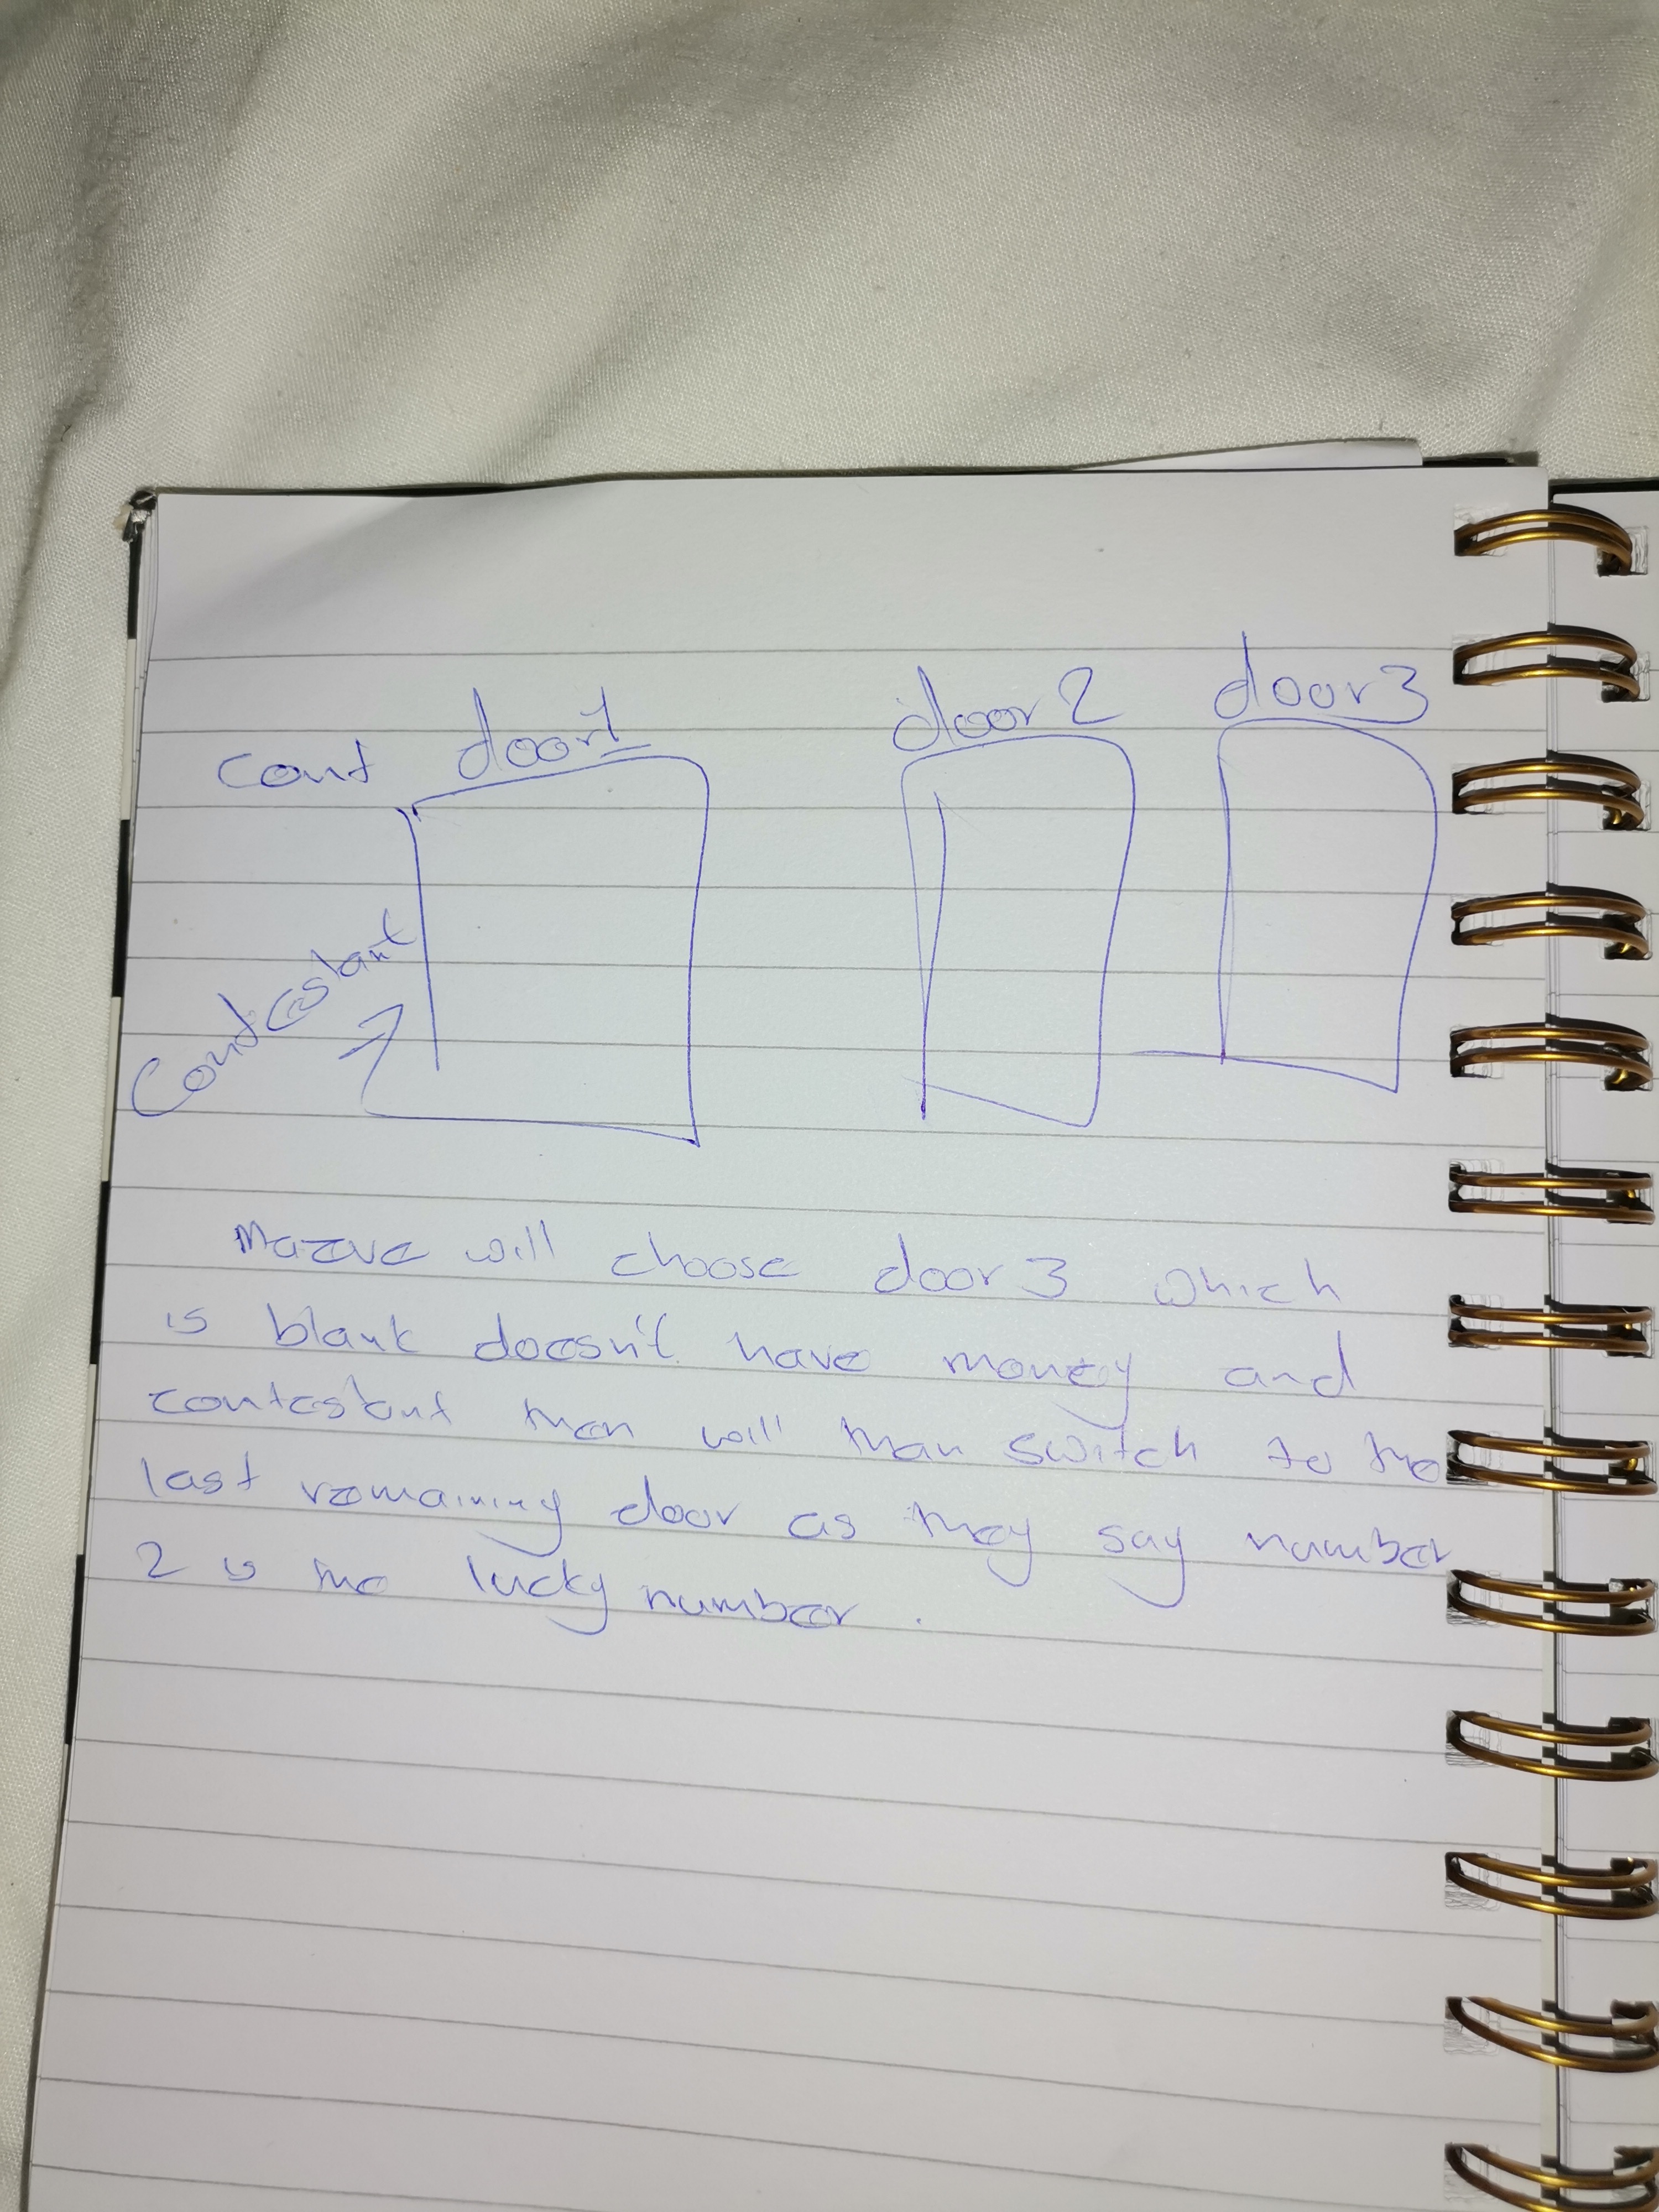 cont door1 door2 door3
Contestant
Maeve will choose door 3 which
is blank doesn't have money and
contestant then will than switch to the
last remaining door as they say number
2 is the lucky number.